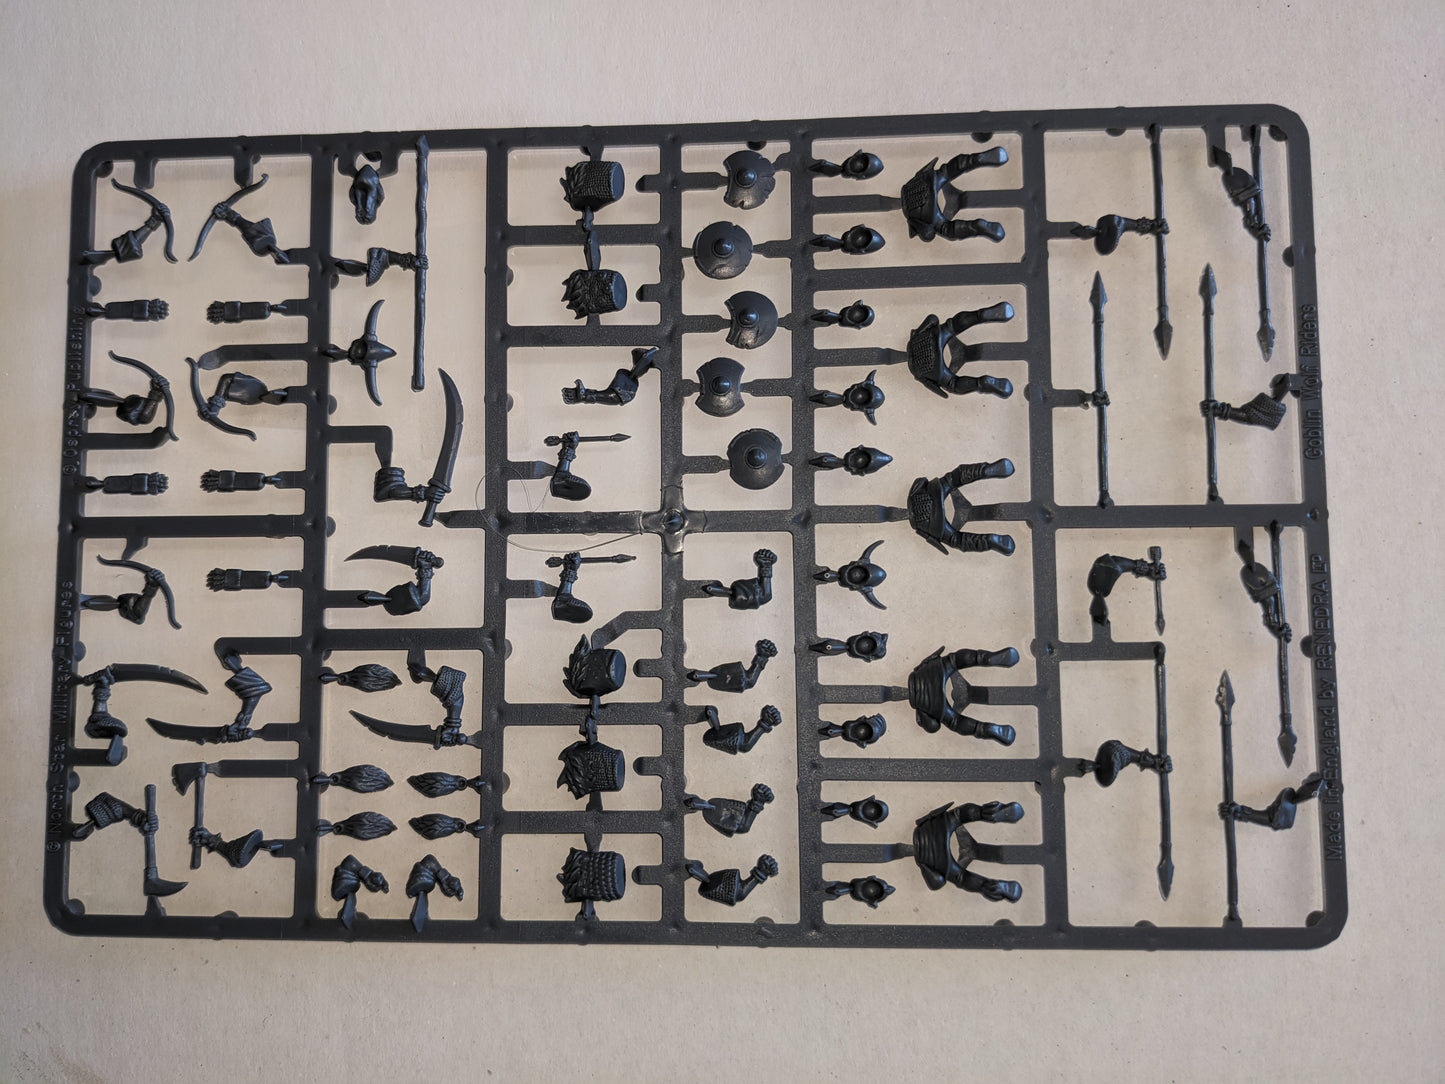 © Osprey Publishing
© North Star Military Figures
Goblin Wolf Riders
Made in England by RENEDRA LTD